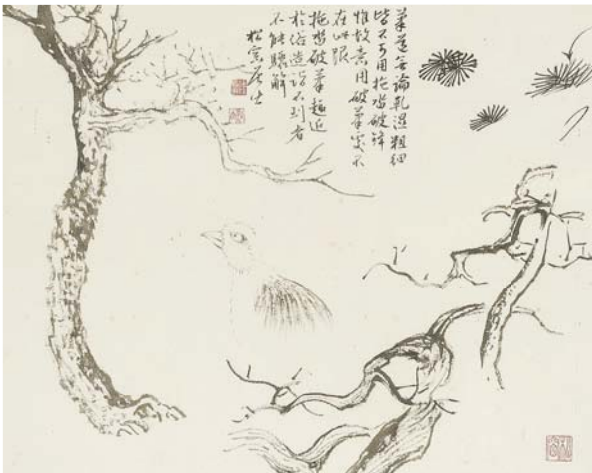 筆道無論乾濕粗細
皆不可用拖沓破鋒
惟故意用破筆處不
在此限
拖沓破筆趨近
於俗造詣不到者
不能驟解
松窗居士